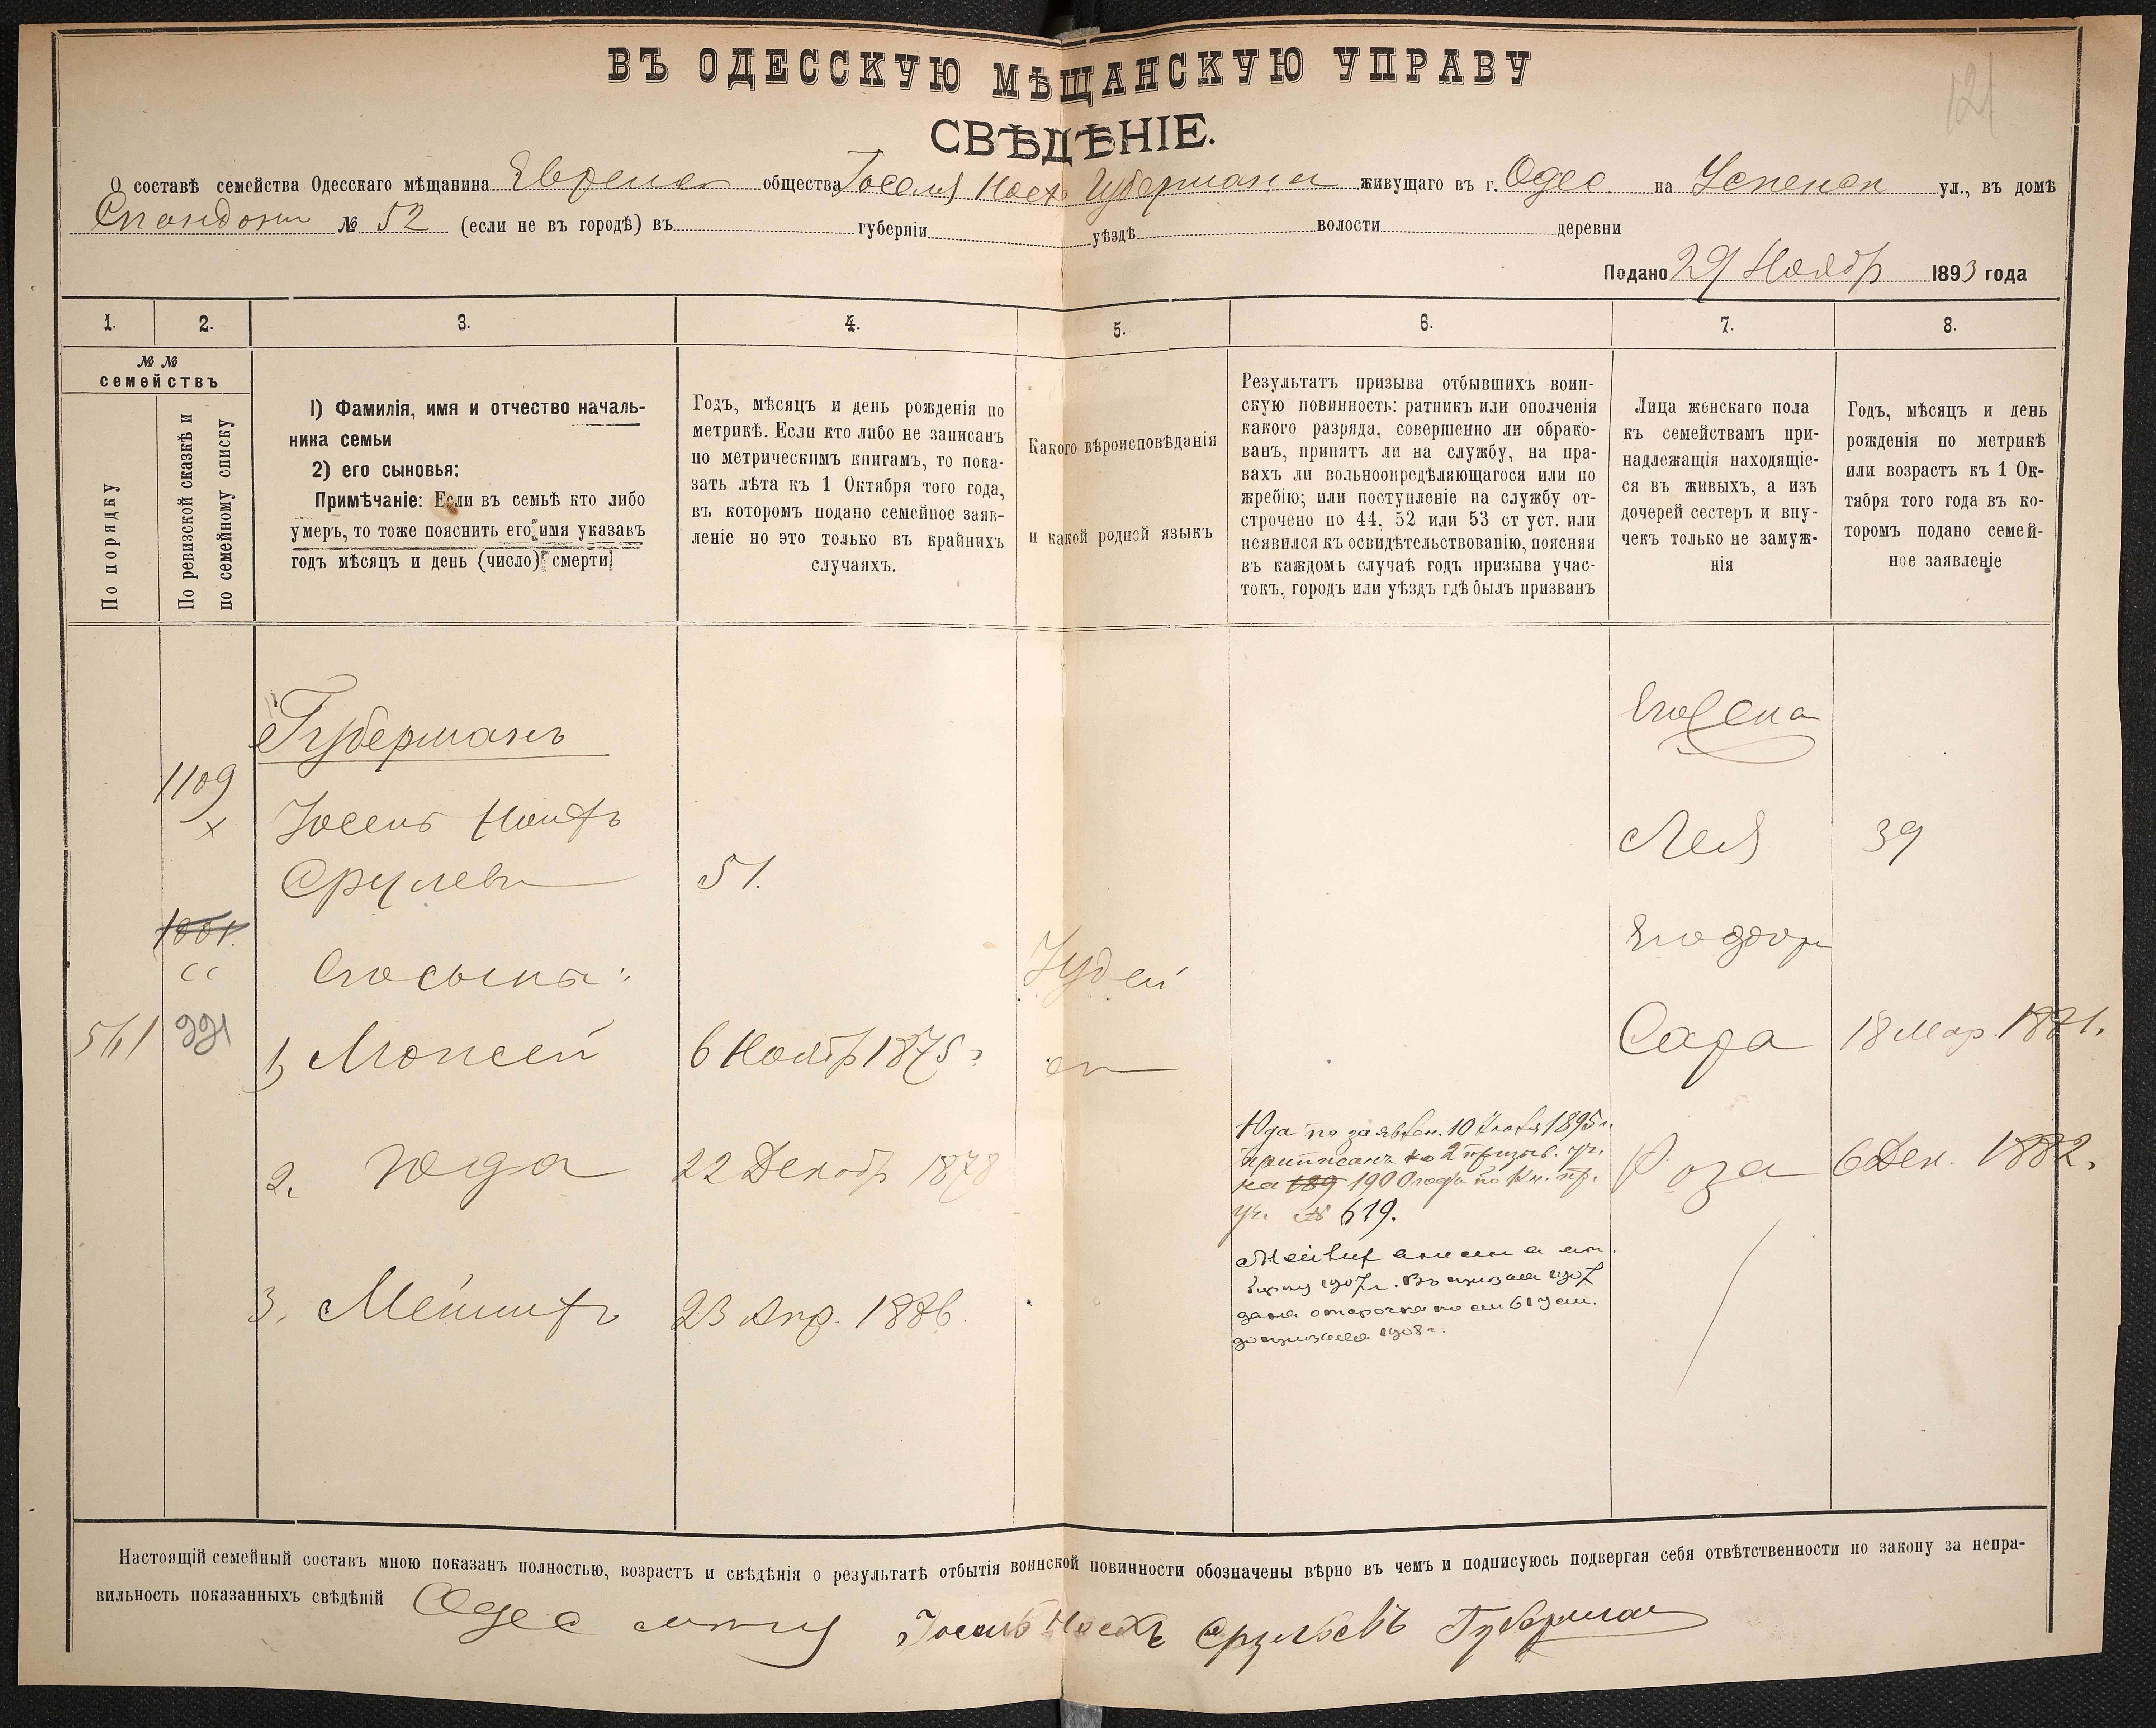 121
ВЪ ОДЕССКУЮ МѢЩАНСКУЮ УПРАВУ
СВѢДѢНІЕ.
О составѣ семейства Одесскаго мѣщанина Еврейск общества Іоселя Госехъ Губермана живущаго въ г. Одес на Успенск ул., въ домѣ
Спандони № 52 (если не въ городѣ) въ губерніи уѣздѣ волости деревни
Подано 29 Ноябр 1893 года
1. 2. 3. 4. 5. 6. 7. 8.
№ №
семействъ
По порядку
По ревизской сказкѣ и
по семейному списку
1) Фамилія, имя и отчество началь-
ника семьи
2) его сыновья:
Примѣчаніе: Если въ семьѣ кто либо
умеръ, то тоже пояснить его имя указавъ
годъ мѣсяцъ и день (число) смерти
Годъ, мѣсяцъ и день рожденія по
метрикѣ. Если кто либо не записанъ
по метрическимъ книгамъ, то пока-
зать лѣта къ 1 Октября того года,
въ которомъ подано семейное заяв-
леніе но это только въ крайнихъ
случаяхъ.
Какого вѣроисповѣданія
и какой родной языкъ
Результатъ призыва отбывшихъ воин-
скую повинность: ратникъ или ополченія
какого разряда, совершенно ли обрако-
ванъ, принятъ ли на службу, на пра-
вахъ ли вольноопредѣляющагося или по
жребію; или поступленіе на службу от-
строчено по 44, 52 или 53 ст уст. или
неявился къ освидѣтельствованію, поясняя
въ каждомъ случаѣ годъ призыва учас-
токъ, городъ или уѣздъ гдѣ былъ призванъ
Лица женскаго пола
къ семействамъ при-
надлежащія находящіе-
ся въ живыхъ, а изъ
дочерей сестеръ и вну-
чекъ только не замуж-
нія
Годъ, мѣсяцъ и день
рожденія по метрикѣ
или возрастъ къ 1 Ок-
тября того года въ ко-
торомъ подано семей-
ное заявленіе
Губерманъ
Его жена
1109
х
Іосель
Срулев
51.
Лея 39
1001.
Его сыны:
Іудей
Его дочр
561 221
1) Моисей 6 Ноябр 1875 г
Сара 18 Мар. 1881.
2. Юда 22 Декабр 1878
Юда по заявлен. 10 1895 г.
приписанъ ко 2 призыв. уч.
на 189 1900 года по кн. пр.
уч. № 619.
Роза 6 Дек. 1882.
3. 23 Апр. 1886.
1907 г. Въ призывъ 1907
дана отсрочка по ст 61 уст.
до призыва 1908 г.
Настоящій семейный составъ мною показанъ полностью, возрастъ и свѣдѣнія о результатѣ отбытія воинской повинности обозначены вѣрно въ чемъ и подписуюсь подвергая себя отвѣтственности по закону за непра-
вильность показанныхъ свѣдѣній Одес Іосель Госехъ Срулевъ Губерман